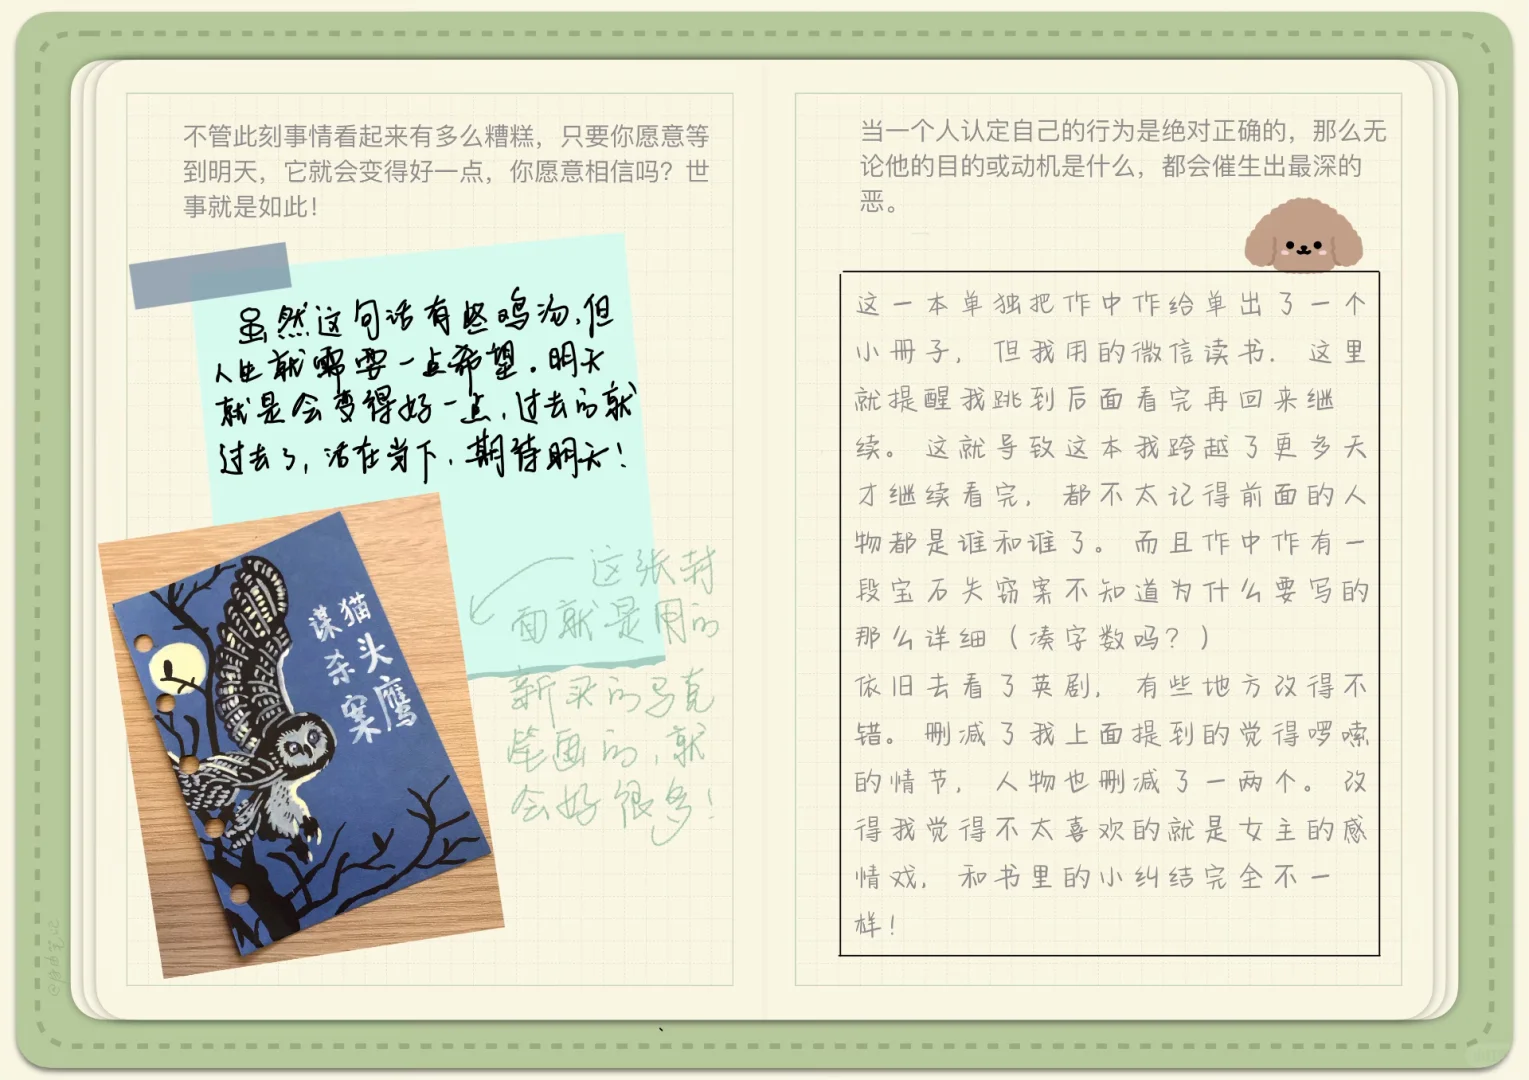 不管此刻事情看起来有多么糟糕，只要你愿意等
到明天，它就会变得好一点，你愿意相信吗？世
事就是如此！
虽然这句话有些鸡汤，但
人生就需要一点希望。明天
就是会变得好一点，过去的就
过去了，活在当下，期待明天！
猫头鹰
谋杀案
这张封
面就是用的
新买的马克
笔画的，就
会好很多！
当一个人认定自己的行为是绝对正确的，那么无
论他的目的或动机是什么，都会催生出最深的
恶。
这一本单独把作中作给单出了一个
小册子，但我用的微信读书，这里
就提醒我跳到后面看完再回来继
续。这就导致这本我跨越了更多天
才继续看完，都不太记得前面的人
物都是谁和谁了。而且作中作有一
段宝石失窃案不知道为什么要写的
那么详细（凑字数吗？）
依旧去看了英剧，有些地方改得不
错。删减了我上面提到的觉得啰嗦
的情节，人物也删减了一两个。改
得我觉得不太喜欢的就是女主的感
情戏，和书里的小纠结完全不一
样！